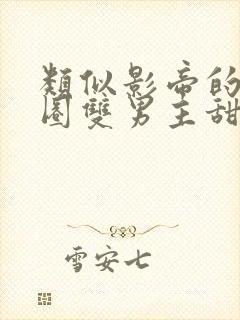 類似影帝的
圈雙男主甜
雪安七